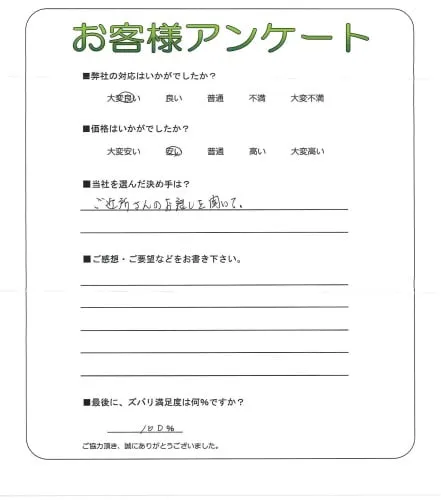 お客様アンケート
■弊社の対応はいかがでしたか？
大変良い 良い 普通 不満 大変不満
■価格はいかがでしたか？
大変安い 安い 普通 高い 大変高い
■当社を選んだ決め手は？
ご近所さんのお話しを聞いて。
■ご感想・ご要望などをお書き下さい。
■最後に、ズバリ満足度は何%ですか？
100%
ご協力頂き、誠にありがとうございました。